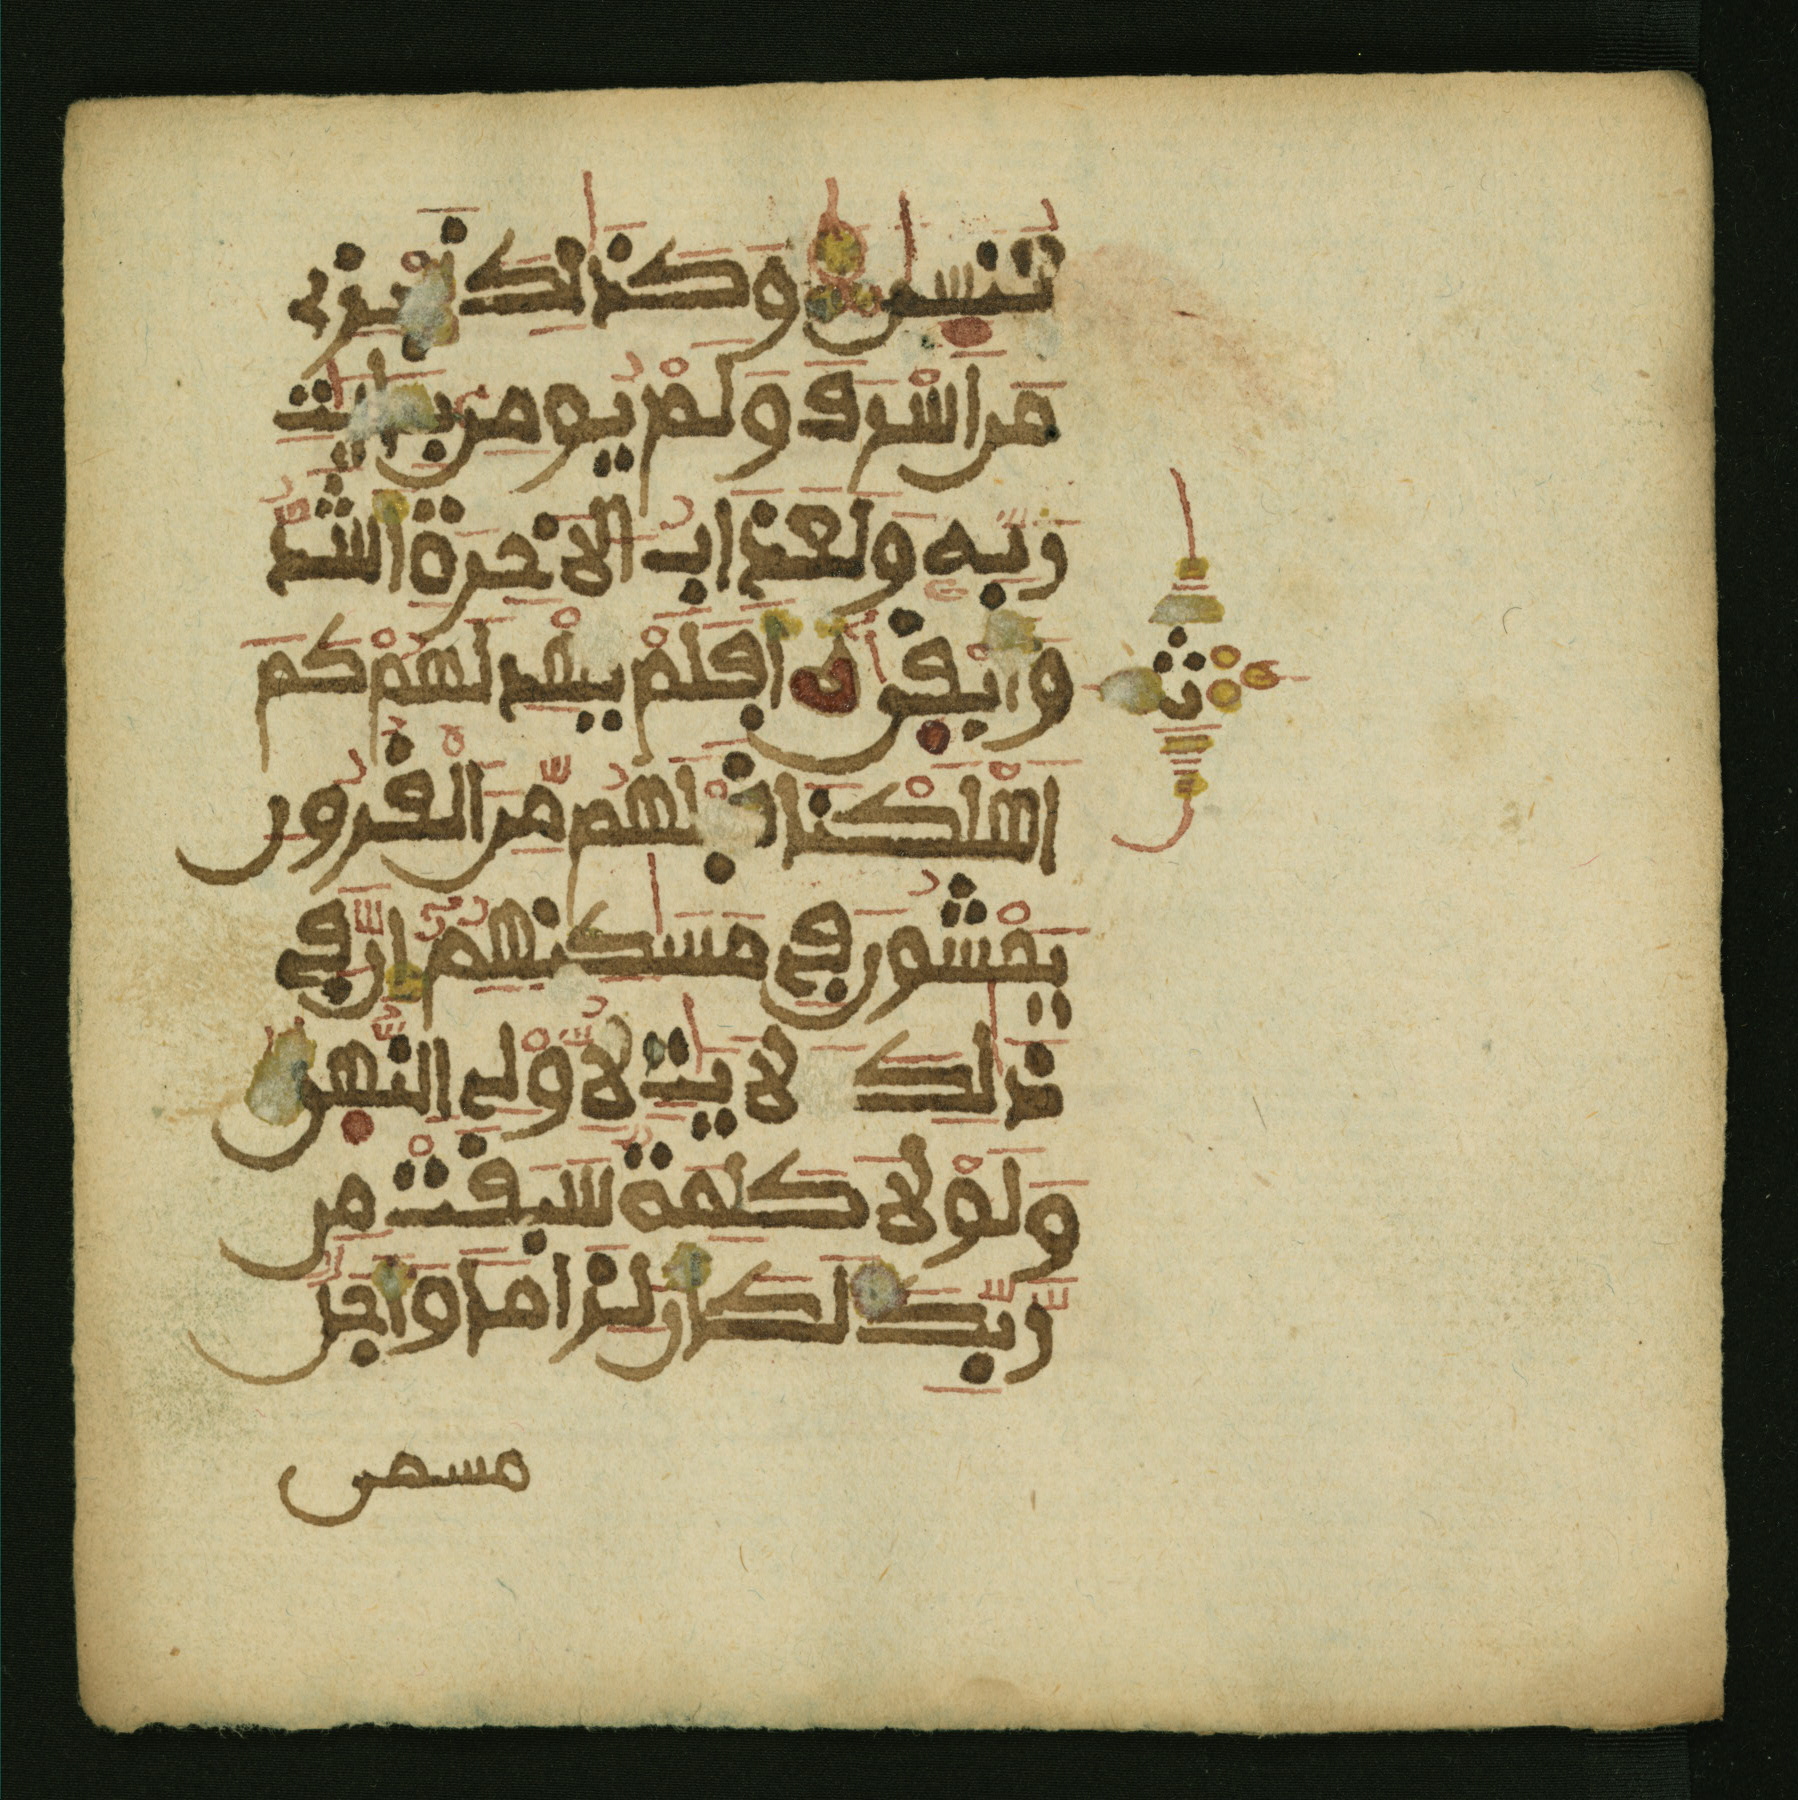 تنسى وكذلك نجزے
من اسرف ولم يومن بايت
ربه ولعذاب الاخرة اشد
وابقى افلم يهد لهم كم
اهلكنا قبلهم من القرون
يمشون في مسكنهم ان في
ذلك لايت لاولے النهى
ولولا كلمة سبقت من
ربك لكان لزاما واجل
مسمى